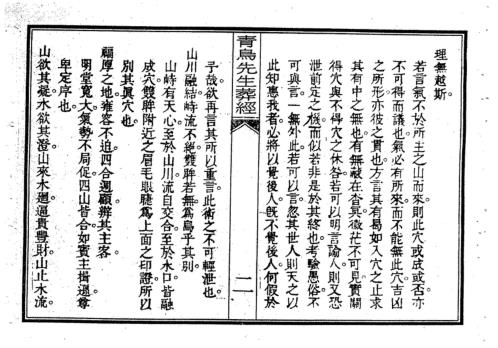 理無越斯。
若言氣不於所主之山而來則此穴或成或否亦
不可得而議也氣必有所來而不能無此穴吉凶
之所形亦彼之貫也方言其有曷如入穴之止求
其有中之無也有無疑在杳冥微茫不可見實關
得穴與不得穴之休咎若可以明言論人則又恐
泄前定之機而似若非是於其終也考驗愚俗不
可與言一無外此若可以言忽其世人則天之以
此知惠我者必將以覺後人既不覺後人何假於
青烏先生葬經
二
予哉欲再言其所以重言此術之不可輕泄也。
山川融結峙流不絕雙眸若無烏乎其別。
山峙有天心至於山川流自交合至於水口皆融
成穴雙眸附近之眉毛眼睫為上面之印證所以
別其真穴也。
福厚之地雍容不迫四合週顧辨其主客
明堂寬大氣勢不局促四山皆合如賓主揖遜尊
卑定序也。
山欲其凝水欲其澄山來水迴逼貴豐財山止水流。